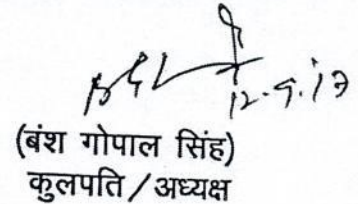 12.9.17
(बंश गोपाल सिंह)
कुलपति / अध्यक्ष